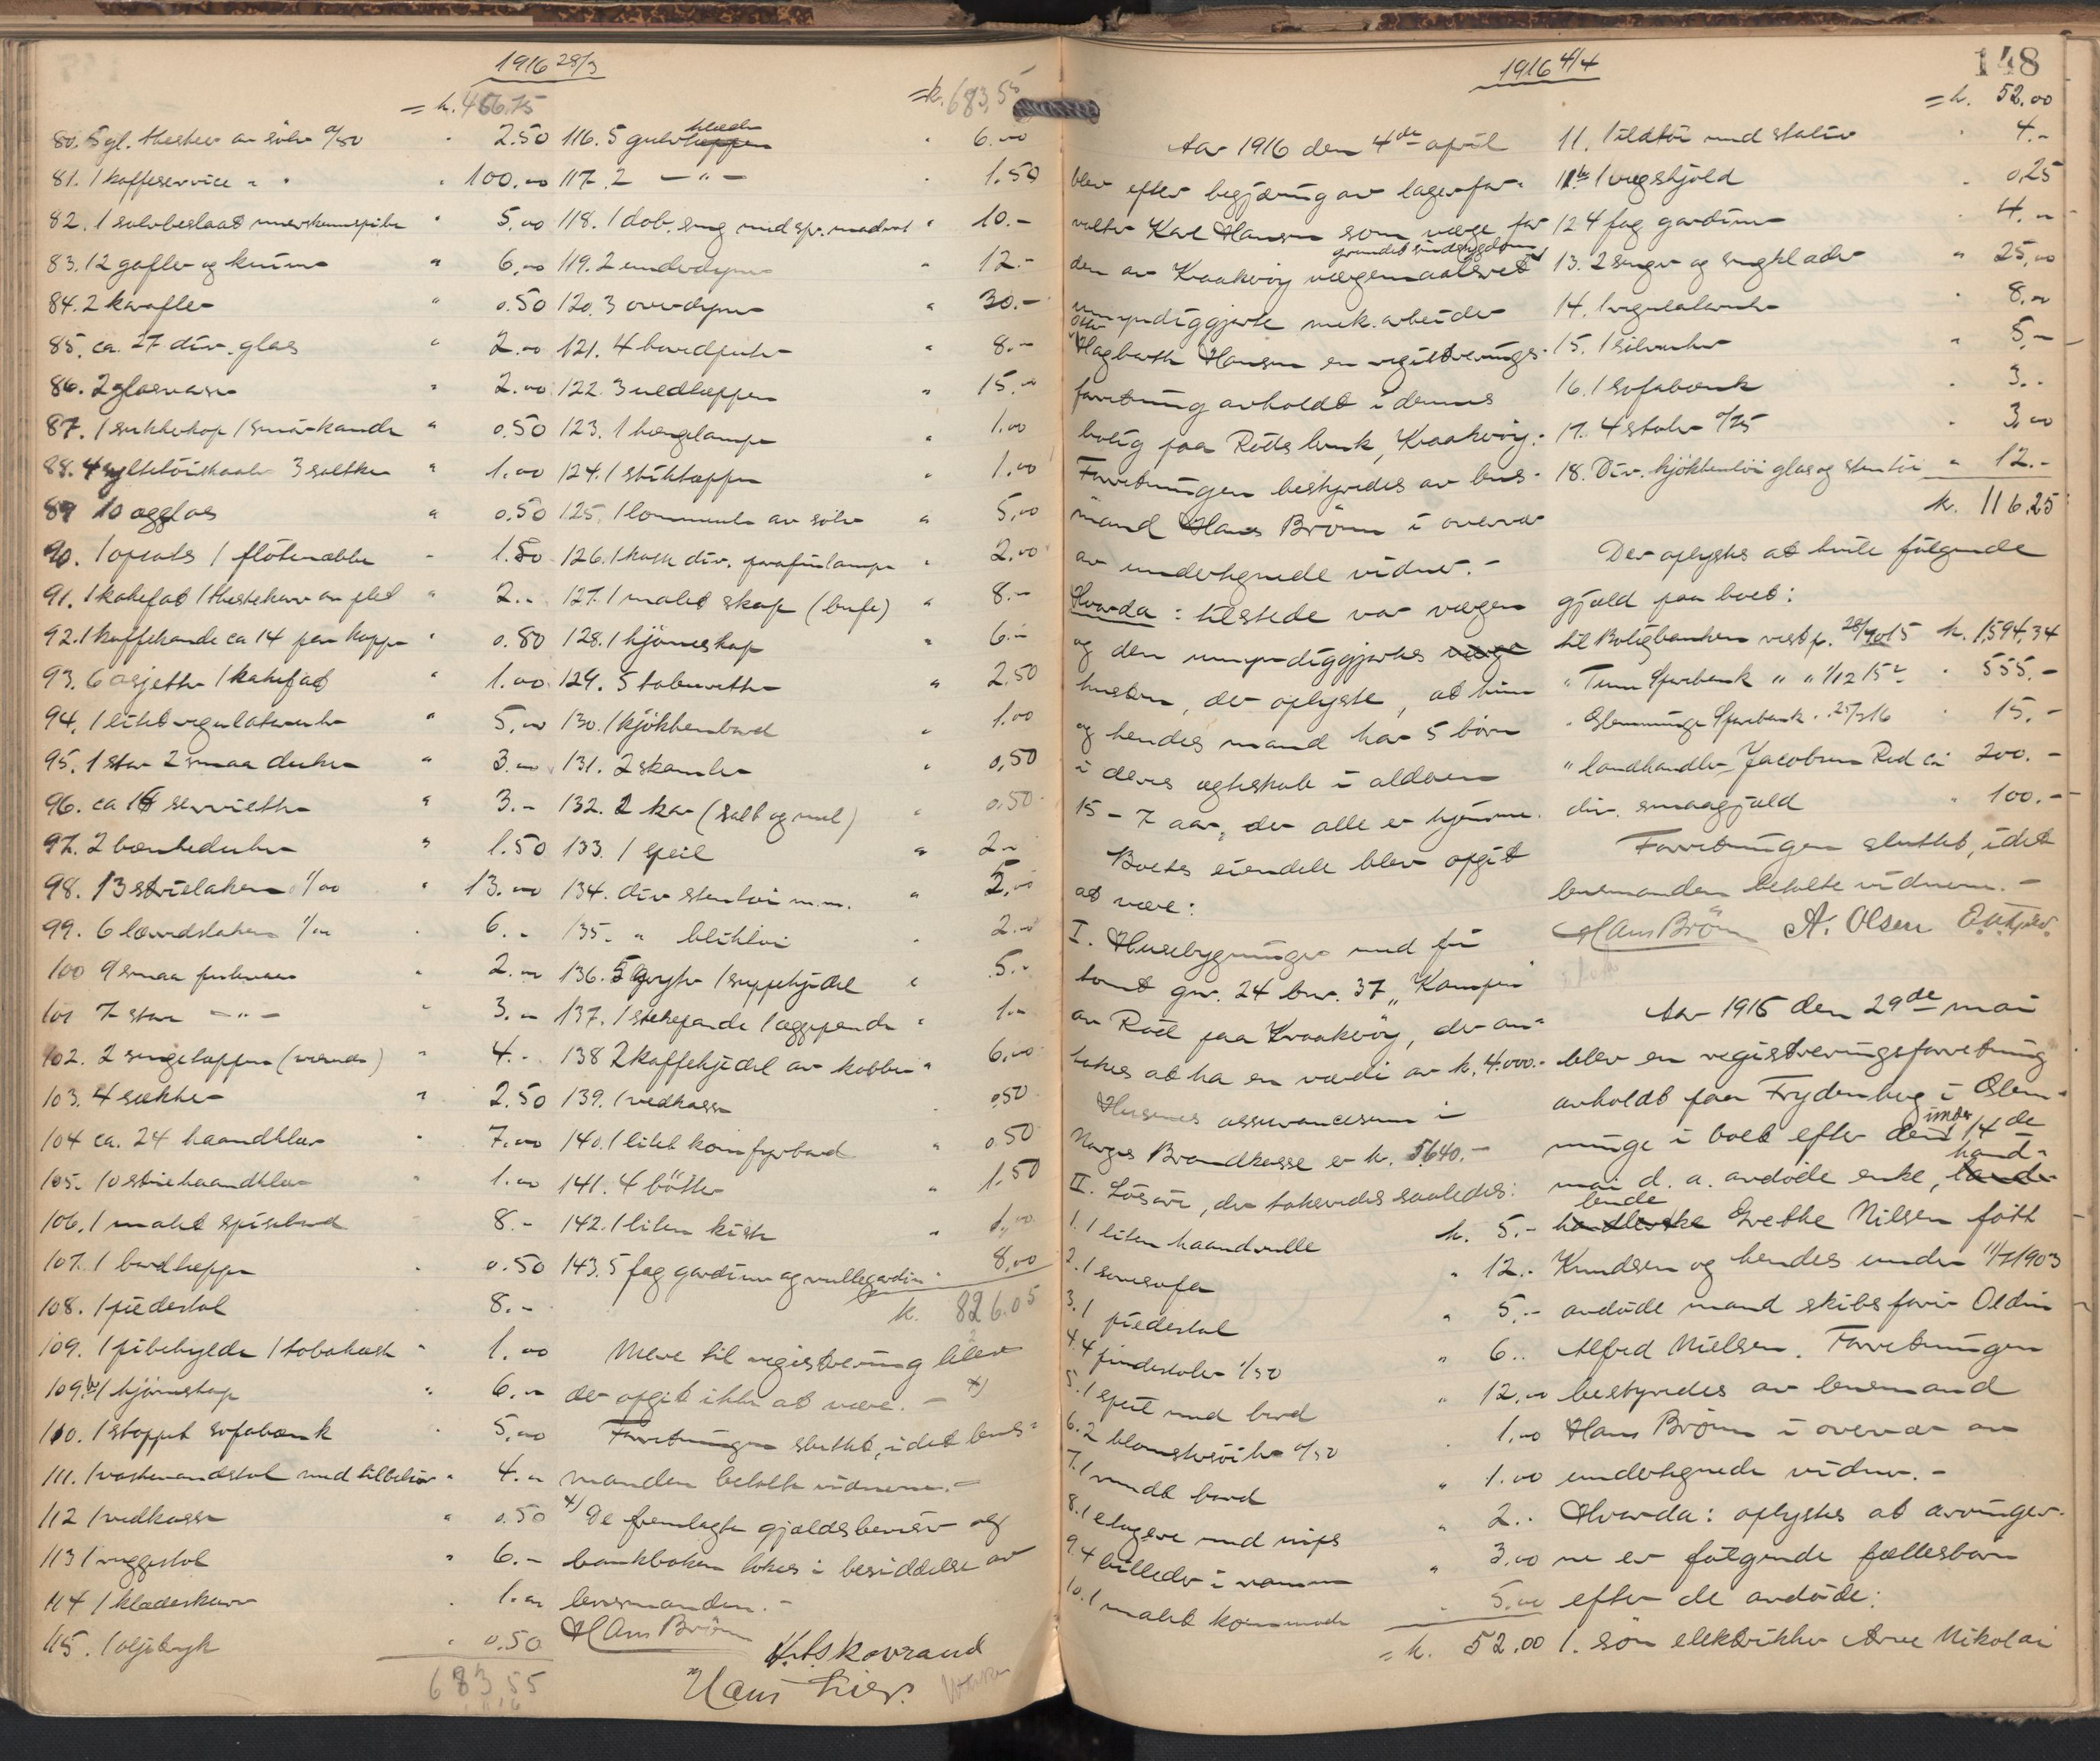 1916 28/3
= k. 466.75
80. 5 gl. theskeer av sölv a/50 " 2.50
81. 1 kaffeservice " " " 100.00
82. 1 sølvbeslaat merskumspibe " 5.00
83. 12 gafler og kniver " 6.00
84. 2 karafler " 0.50
85. ca. 27 div. glas " 2.00
86. 2 glasvaser " 2.00
87. 1 sukkerkop 1 smörkande " 0.50
88. 4 syltetöiskaaler 3 saltkar " 1.00
89 10 egglas " 0.50
90. 1 opsats 1 flötenebbe " 1.50
91. 1 kakefat 1 theskekurv av plet " 2..
92. 1 kaffekande ca 14 par kopper " 0.80
93. 6 asjetter 1 kakefat " 1.00
94. 1 litet regulatoruhr " 5.00
95. 1 stor 2 smaa duker " 3.00
96. ca 18 servietter " 3.-
97. 2 bænkeduker " 1.50
98. 13 strielaken 1/00 " 13.00
99. 6 lærredslaken 1/00 " 6..
100 9 smaa putevaar " 2.00
101 7 store -"- " 3.00
102. 2 sengetepper " 4.-
103. 4 sækker " 2.50
104 ca. 24 haandklær " 7.00
105. 10 striehaandklær " 1.00
106. 1 malet spisebord 8.-
107. 1 bordteppe " 0.50
108. 1 piedestal 8.-
109. 1 pibehylde 1 tobakask " 1.00
109b. 1 hjörneskap " 6.00
110. 1 stoppet sofabænk " 5.00
111. 1 vaskevandstol med tilbehør " 4.00
112 1 vedkasse " 0.50
113 1 vuggestol " 6.-
114 1 klædeskurv " 1.00
115. 1 oljetryk " 0.50
683.55
= k. 683,55
116. 5 gulvklæder " 6.00
117. 2 -"- " 1.50
118. 1 dob. seng med spr. madras " 10.-
119. 2 underdyner " 12.-
120. 3 overdyner " 30.-
121. 4 hovedputer " 8.-
122. 3 uldtepper " 15.00
123. 1 hengelampe " 1.00
124. 1 stiktæppe " 1.00
125. 1 lommeuhr av sölv " 5,00
126. 1 kasse div. parafinlamper " 2.00
127. 1 malet skap (bufe) " 8.-
128. 1 hjörneskap " 6.-
129. 5 taburetter " 2.50
130. 1 kjökkenbord " 1.00
131. 2 skamler " 0,50
132. 2 kar (salt og mel) " 0.50
133. 1 speil " 2.-
134. div stentöi m.m. " 2,00
135. " bliktöi " 2.00
136. 5 gryter 1 suppekjedel " 5.-
137. 1 stekepande 1 æggepande " 1.-
138 2 kaffekjedel av kobber " 6,00
139. 1 vedkasse " 0,50
140. 1 litet komfyrbord " 0.50
141. 4 bötter " 1.50
142. 1 liten kiste " 1,00
143. 5 fag gardiner og rullegardin " 8,00
k. 826.05
Mere til registrering blev
der opgit ikke at være. - x)
Forretningen sluttet, idet lens=
manden betalte vidnerne. -
x) De fremlagte gjældsbevis og
bankboken tokes i besiddelse av
lensmanden. -
Hans Bröm
H. Askovrand
Hans Lier.
1916 4/4
148
Aar 1916 den 4de april
blev efter begjæring av lagerfor=
valter Karl Hansen som værge for
den av Kraakeröy værgemaalsret grundet sindssygdom
umyndiggjorte mek. arbeider
Hagbarth Hansen en registrerings-
forretning avholdt i dennes
bolig paa Röds bruk, Kraakeröy.
Forretningen bestyredes av lens-
mand Hans Bröm i overvær
av undertegnede vidner. -
Hvorda: tilstede var værgen
og den umyndiggjortes værge
hustru, der oplyste, at hun
og hendes mand har 5 börn
i deres egteskab i alderen
15 - 7 aar, der alle er hjemme.
Boets eiendele blev opgit
at være:
I. Husebygninger med fri
tomt gnr. 24 bnr. 37 "Kampen
av Röd paa Kraakeröy, der an=
tokes at ha en værdi av k. 4.000.-
Husenes assurancesum i
Norges Brandkasse er k. 5640.-
II. Lösöre, der takseredes saaledes:
1. 1 liten haandrulle k. 5.-
2. 1 sovesofa " 12.-
3. 1 piedestal " 5.-
4. 4 pindestoler 1/50 " 6..
5. 1 speil med bord " 12.00
6. 2 blomstersöiler 0/50 . 1.00
7. 1 rundt bord " 1.00
8. 1 etagere med nips " 2..
9. 4 billeder i ramme " 3.00
10. 1 malet kommode " 5.00
= k. 52.00
= k. 52.00
11. 1 ildtöi med stativ " 4.-
11b. 1 vegskjold " 0,25
12 4 fag gardiner " 4.00
13. 2 senger og sengklæder " 25,00
14. 1 regulatoruhr " 8.00
15. 1 sölvuhr " 5,-
16. 1 sofabænk " 3..
17. 4 stoler 0/75 " 3,00
18. Div. kjökkentöi glas og stentöi " 12.-
k. 116.25
Der oplystes at hvile fölgende
gjæld paa boet:
til Boligbanken rest pr. 28/10 15 k. 1,594,34
" Tune Sparebank " " 1/12 15 " 555.-
" Glemminge Sparebank " 25/3 16 " 15.-
" landhandler Jacobsen Röd ca 200.-
div. smaagjæld " 100.-
Forretningen sluttet, idet
lensmanden betalte vidnerne. -
Hans Bröm A. Olsen
Aar 1916 den 29de mai
blev en registreringsforretning
avholdt paa Frydenberg i Glem-
minge i boet efter den 14de
mai d. a. avdöde enke, hand-
lende Grethe Nilsen födt
Knudsen og hendes under 11/7 1903
avdöde mand skibsförer Oldin
Alfred Nielsen. Forretningen
bestyredes av lensmand
Hans Bröm i overvær av
undertegnede vidner. -
Hvorda: oplystes at arvinger-
ne er fölgende fællesbarn
efter de avdöde:
1. sön elektriker Arne Nikolai